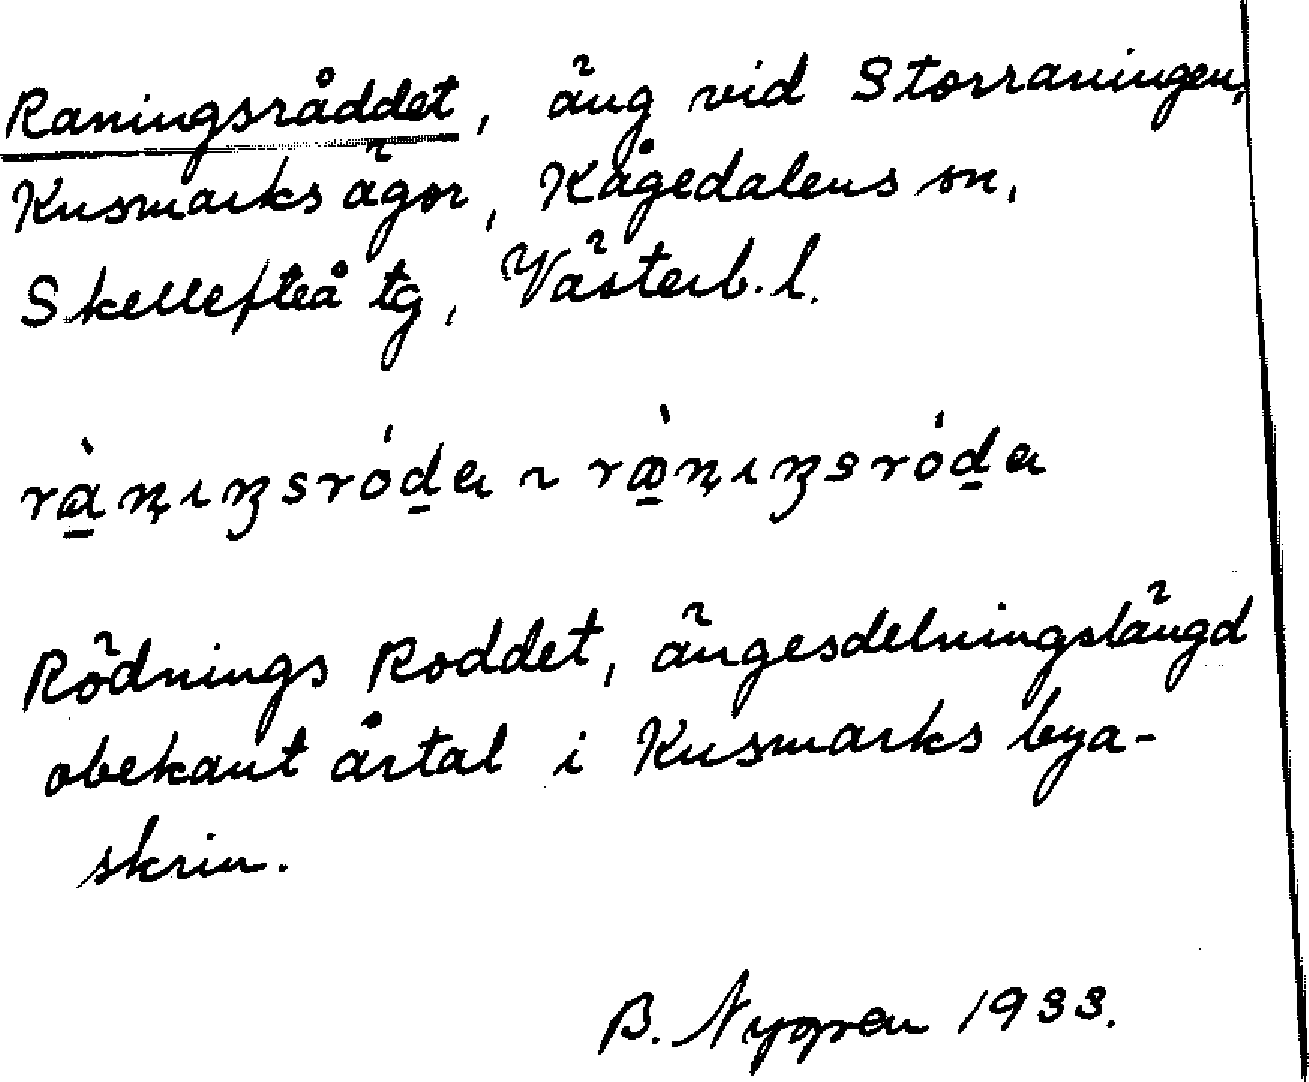 Raningsråddet, äng vid Storraningen,
Kusmarks ägor, Kågedalens sn,
Skellefteå tg, Västerb. l.
Rödnings Roddet, ängesdelningslängd
obekant årtal i Kusmarks bya-
skrin.
B. Nygren 1933.